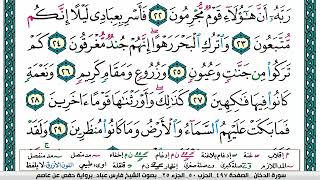 رَبَّهُۥٓ أَنَّ هَٰٓؤُلَآءِ قَوْمٌ مُّجْرِمُونَ ٢٢ فَأَسْرِ بِعِبَادِى لَيْلًا إِنَّكُم
مُّتَّبَعُونَ ٢٣ وَٱتْرُكِ ٱلْبَحْرَ رَهْوًا ۖ إِنَّهُمْ جُندٌ مُّغْرَقُونَ ٢٤ كَمْ
تَرَكُوا۟ مِن جَنَّٰتٍ وَعُيُونٍ ٢٥ وَزُرُوعٍ وَمَقَامٍ كَرِيمٍ ٢٦ وَنَعْمَةٍ
كَانُوا۟ فِيهَا فَٰكِهِينَ ٢٧ كَذَٰلِكَ ۖ وَأَوْرَثْنَٰهَا قَوْمًا ءَاخَرِينَ ٢٨
فَمَا بَكَتْ عَلَيْهِمُ ٱلسَّمَآءُ وَٱلْأَرْضُ وَمَا كَانُوا۟ مُنظَرِينَ ٢٩ وَلَقَدْ
سورة الدخان الصفحة ٤٩٧ الحزب ٥٠ الجزء ٢٥ بصوت الشيخ فارس عباد برواية حفص عن عاصم